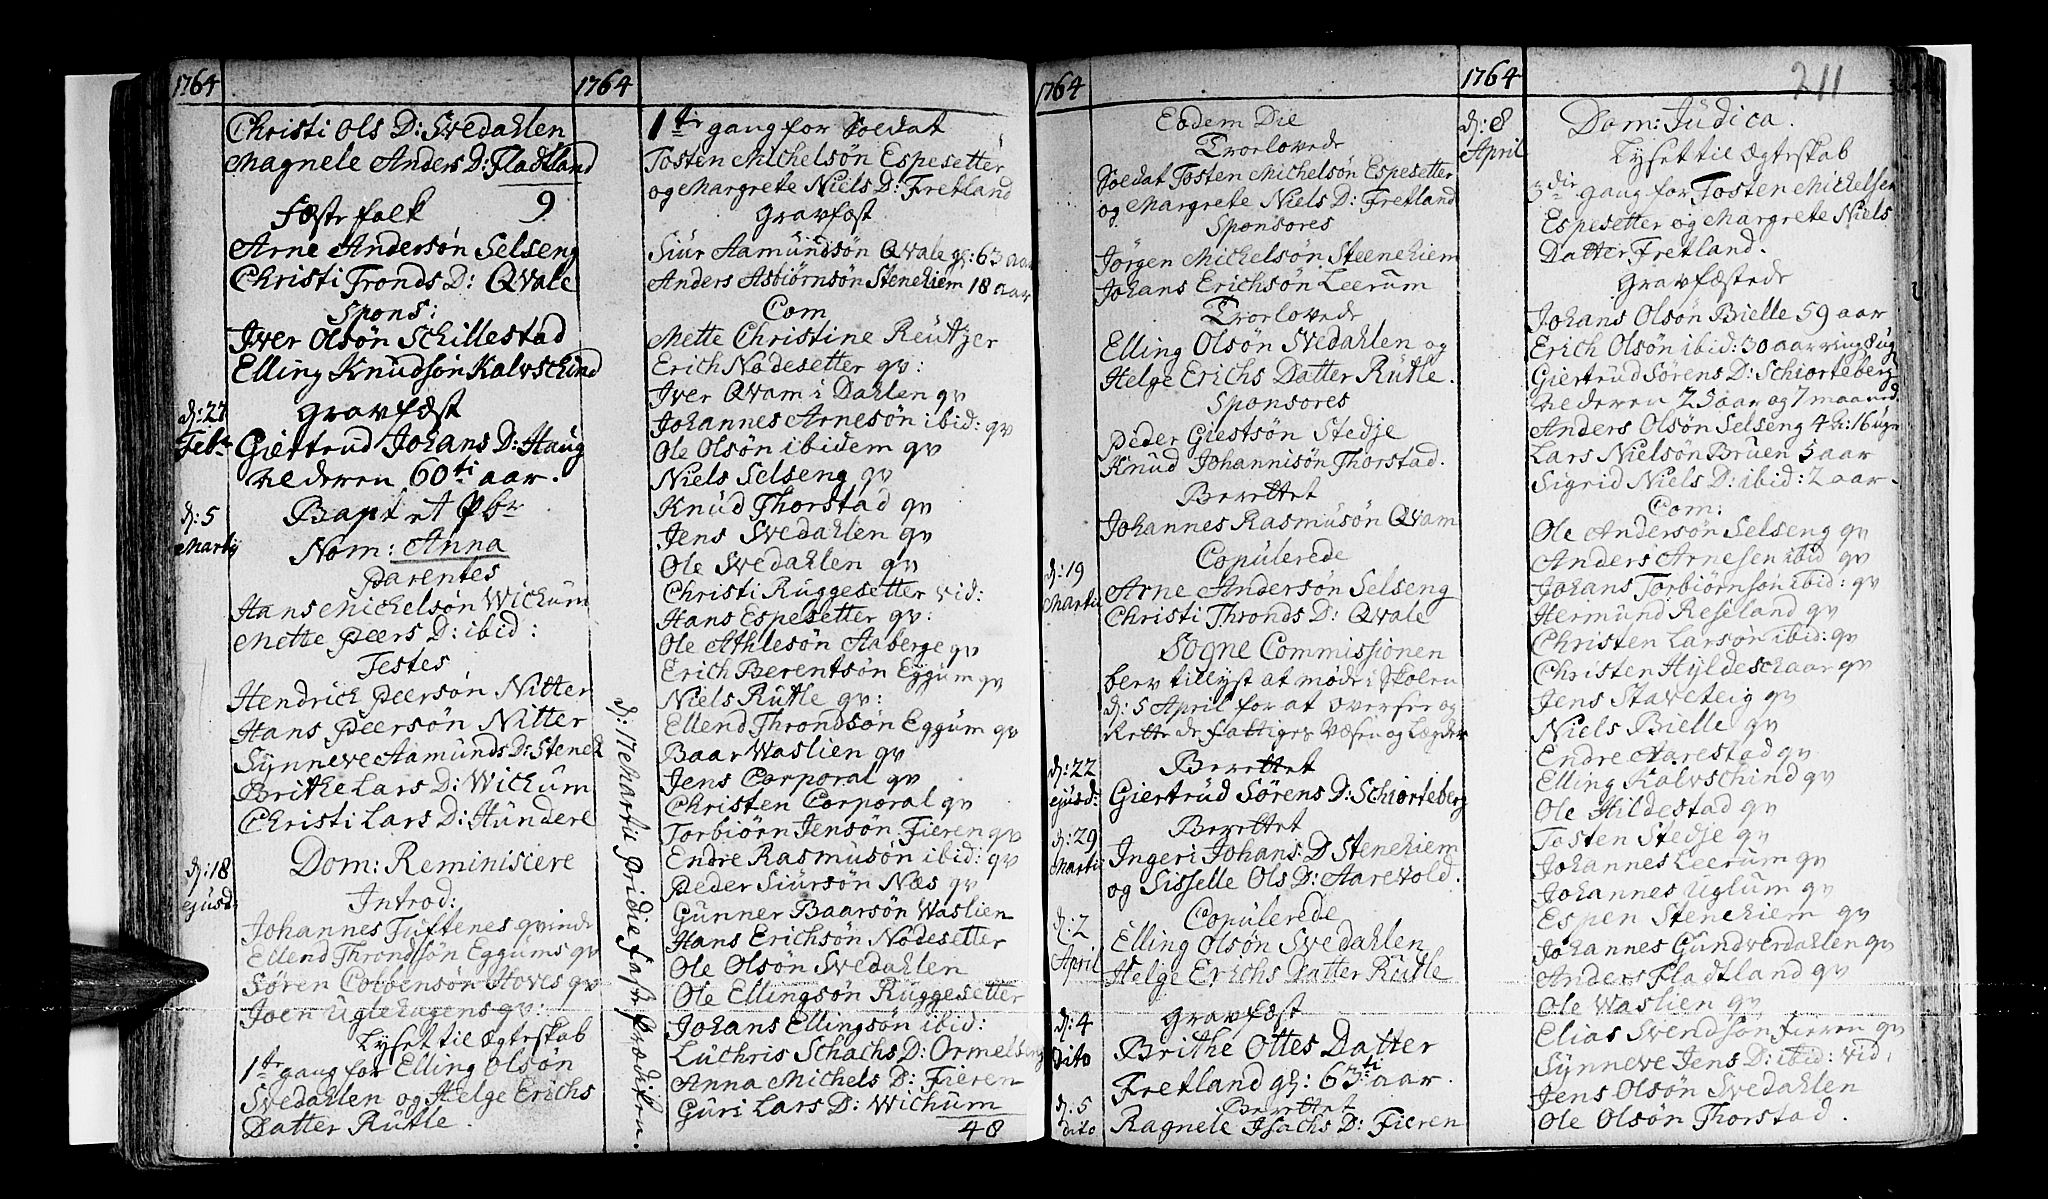 1764
Christi Ols D: Svedahlen
Magnele Anders D: Fladtland
Fæstefolk 9
Arne Andersøn Selseng
Christi Tronds D: Qvale
Spons:
Iver Olsøn Schillestad
Elling Knudsøn Kalvschind
d: 27 Febr
Gravfæst
Giertrud Johans D: Haug
Nederen 60ti aar.
d: 5 Martij
Bapt et Pbr
Nom: Anna
Parentes
Hans Michelsøn Wichum
Mette Peers D: ibid:
Testes
Hendrich Peersøn Nitter
Hans Peersøn Nitter
Synneve Aamunds D: Steneh
Brithe Lars D: Wichum
Christi Lars D: Hundere
d: 18 ejusd:
Dom: Reminiscere
Introd:
Johannes Tuftenes qvinde
Ellend Throndsøn Eggums qv
Søren Colbensøn Hoves qv
Joen Uglehagens qv:
Lyset til Ægteskab
1te gang for Elling Olsøn
Svedahlen og Helge Erichs
Datter Rutle.
1764
d: 17 Martii pridie faste prædiken.
1te gang for Soldat
Tosten Michelsøn Espesetter
og Margrete Niels D: Fretland
Gravfæst
Siur Aamundsøn Qvale gl: 63 aar
Anders Asbiørnsøn Stenehiem 18 aar
Com
Mette Christine Reutzer
Erich Nødesetter qv:
Iver Qvam i Dahlen qv
Johannes Arnesøn ibid: qv
Ole Olsøn ibidem qv
Niels Selseng qv
Knud Thorstad qv
Jens Svedahlen qv
Ole Svedahlen qv
Christi Ruggesetter vid:
Hans Espesetter qv:
Ole Athlesøn Aaberge qv
Erich Berentsøn Eggum qv
Niels Rutle qv:
Ellend Throndsøn Eggum qv
Baar Waslien qv
Jens Corporal qv
Christen Corporal qv
Torbiørn Jensøn Fieren qv
Endre Rasmusøn ibid: qv
Peder Siursøn Næs qv
Gunner Baarsøn Waslien
Hans Erichsøn Nødesetter
Ole Olsøn Svedahlen
Ole Ellingsøn Ruggesetter
Johans Ellingsøn ibid:
Luchris Schachs D: Ormelseng
Anna Michels D: Fieren
Guri Lars D: Wichum
48
1764
Eodem Die
Trorlovede
Soldat Tosten Michelsøn Espesetter
og Margrete Niels D: Fretland
Sponsores
Jørgen Michelsøn Steenehiem
Johans Erichsøn Leerum
Trorlovede
Elling Olsøn Svedahlen og
Helge Erichs Datter Rutle.
Sponsores
Peder Giestsøn Stedje
Knud Johannisøn Thorstad.
Berettet
Johannes Rasmusøn Qvam
d: 19 Martii
Copulerede
Arne Andersøn Selseng
Christi Thronds D: Qvale
Sogne Commissionen
blev tillyst at møde i Skolen
d: 5 April for at oversee og
Rette de fattiges Væsen og Lægder
d: 22 ejusd:
Berettet
Giertrud Sørens D: Schiorteberg
d: 29 Martii
Berettet
Ingeri Johans D Stenehiem
og Sisselle Ols D: Aarevold.
d: 2 April
Copulerede
Elling Olsøn Svedahlen
Helge Erichs Datter Rutle
d: 4 dito
Gravfæst
Brithe Ottes Datter
Fretland gl: 63ti aar.
d: 5 dito
Berettet
Ragnele Isachs D: Fieren
1764
211
d: 8 April
Dom: Judica.
Lyset til Ægteskab
3die gang for Tosten Michelsen
Espesetter og Margrete Niels
Datter Fretland.
Gravfæstede
Johans Olsøn Bielle 59 aar
Erich Olsøn ibid: 30 aar ring 8 ug
Giertrud Sørens D: Schiorteberg
Nederen 25 aar og 7 maaned
Anders Olsøn Selseng 4 h: 16 ugr
Lars Nielsøn Bruen 5 aar
Sigrid Niels D: ibid: 2 aar.
Com:
Ole Andersøn Selseng qv
Anders Arnesen ibid qv
Johans Torbiørnsøn ibid: qv
Hermund Reseland qv
Christen Larsøn ibid: qv
Christen Hyldeschaar qv
Jens Staveteig qv
Niels Bielle qv
Endre Aarestad qv
Elling Kalvschind qv
Ole Hildestad qv
Tosten Stedje qv
Johannes Leerum qv
Johannes Uglum qv
Espen Stenehiem qv
Johannes Gundverdahlen qv
Anders Fladtland qv
Ole Waslien qv
Elias Svendsøn Fieren qv
Synneve Jens D: ibid: vid:
Jens Olsøn Svedahlen
Ole Olsøn Thorstad.